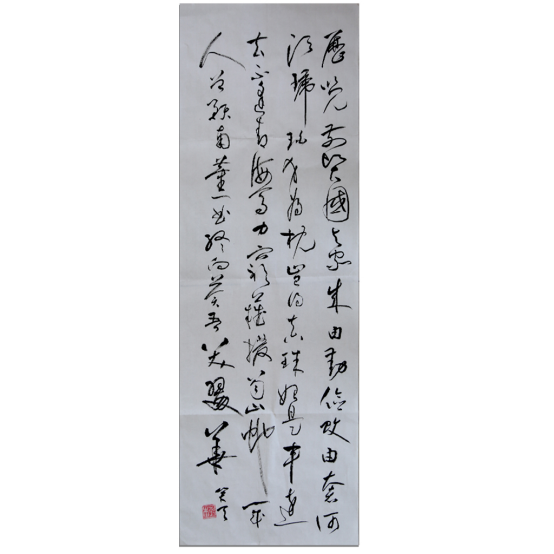 歷覽前賢國與家成由勤儉敗由奢何
須琥珀方為枕豈得真珠始是車運
去不逢青海馬力窮難拔蜀山蛇幾
人曾預南薰曲終古蒼梧哭翠華